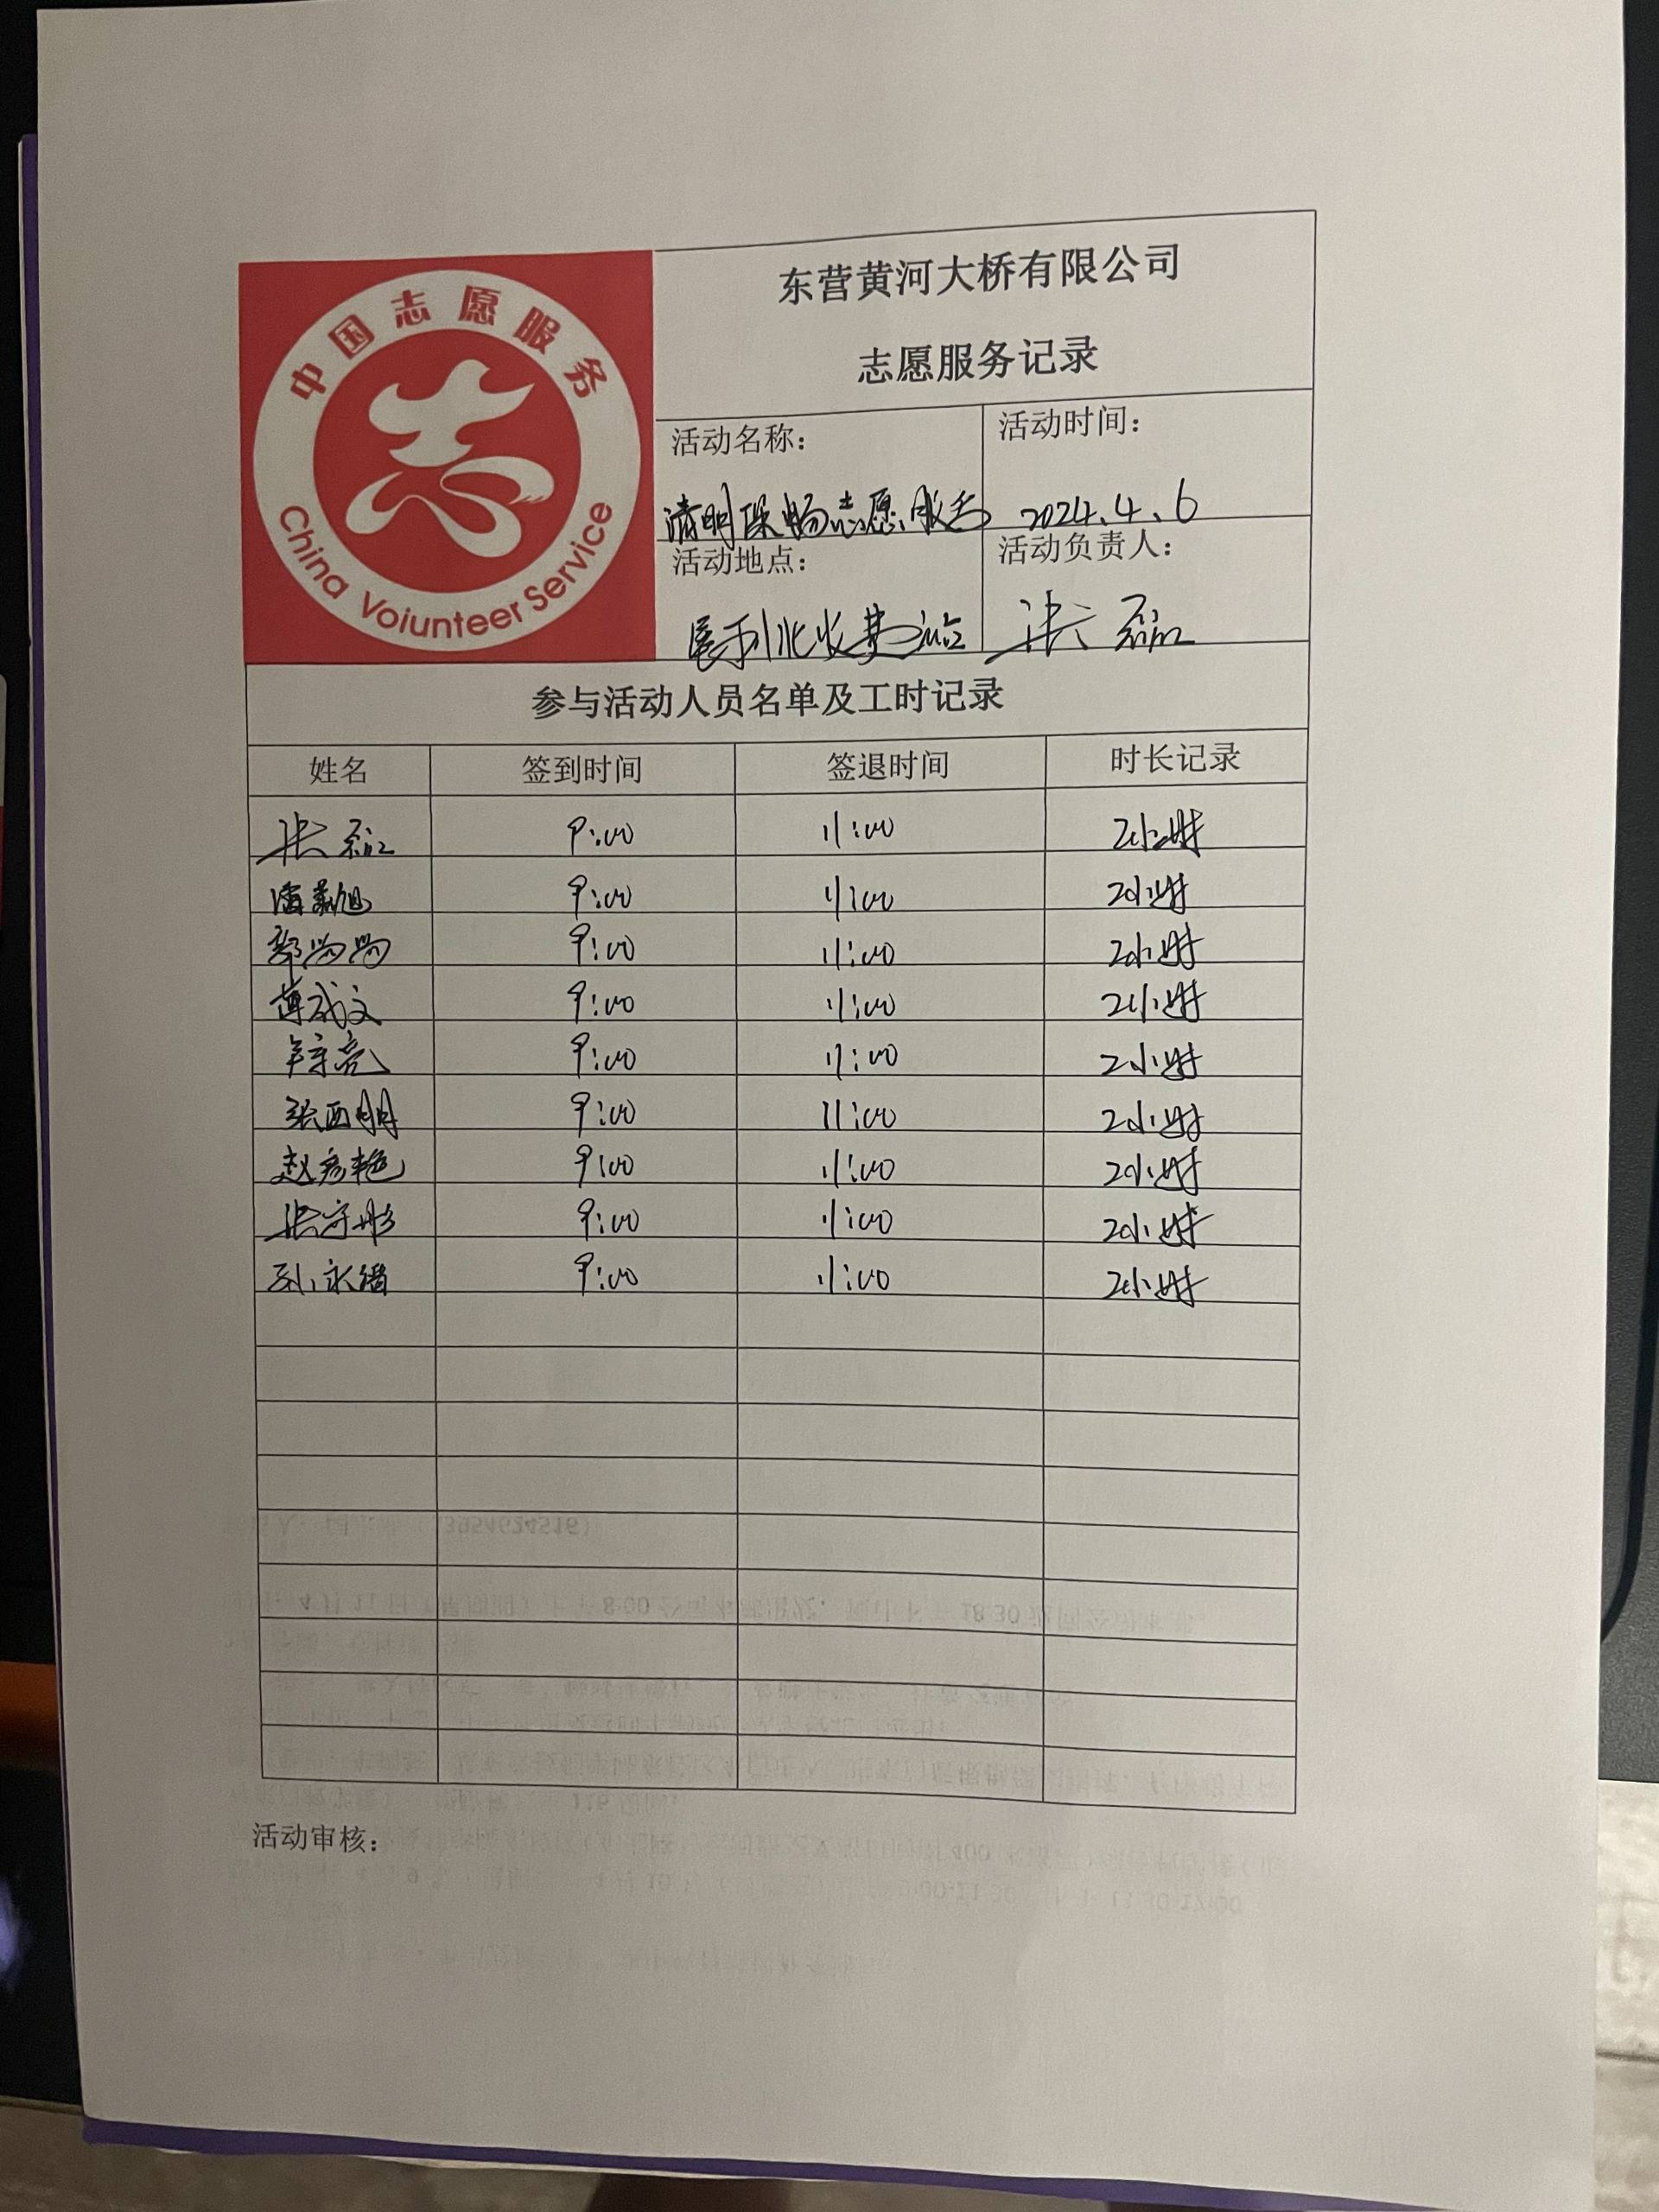 中国志愿服务
China Voiunteer Service
东营黄河大桥有限公司
志愿服务记录
活动名称：
清明保畅志愿服务
活动时间：
2024.4.6
活动地点：
垦利北收费站
活动负责人：
张磊
参与活动人员名单及工时记录
姓名 签到时间 签退时间 时长记录
张磊 9:00 11:00 2小时
潘新旭 9:00 11:00 2小时
郭鸣鸣 9:00 11:00 2小时
薄成文 9:00 11:00 2小时
9:00 11:00 2小时
张西朋 9:00 11:00 2小时
赵彦艳 9:00 11:00 2小时
张守彬 9:00 11:00 2小时
孙永缙 9:00 11:00 2小时
活动审核：